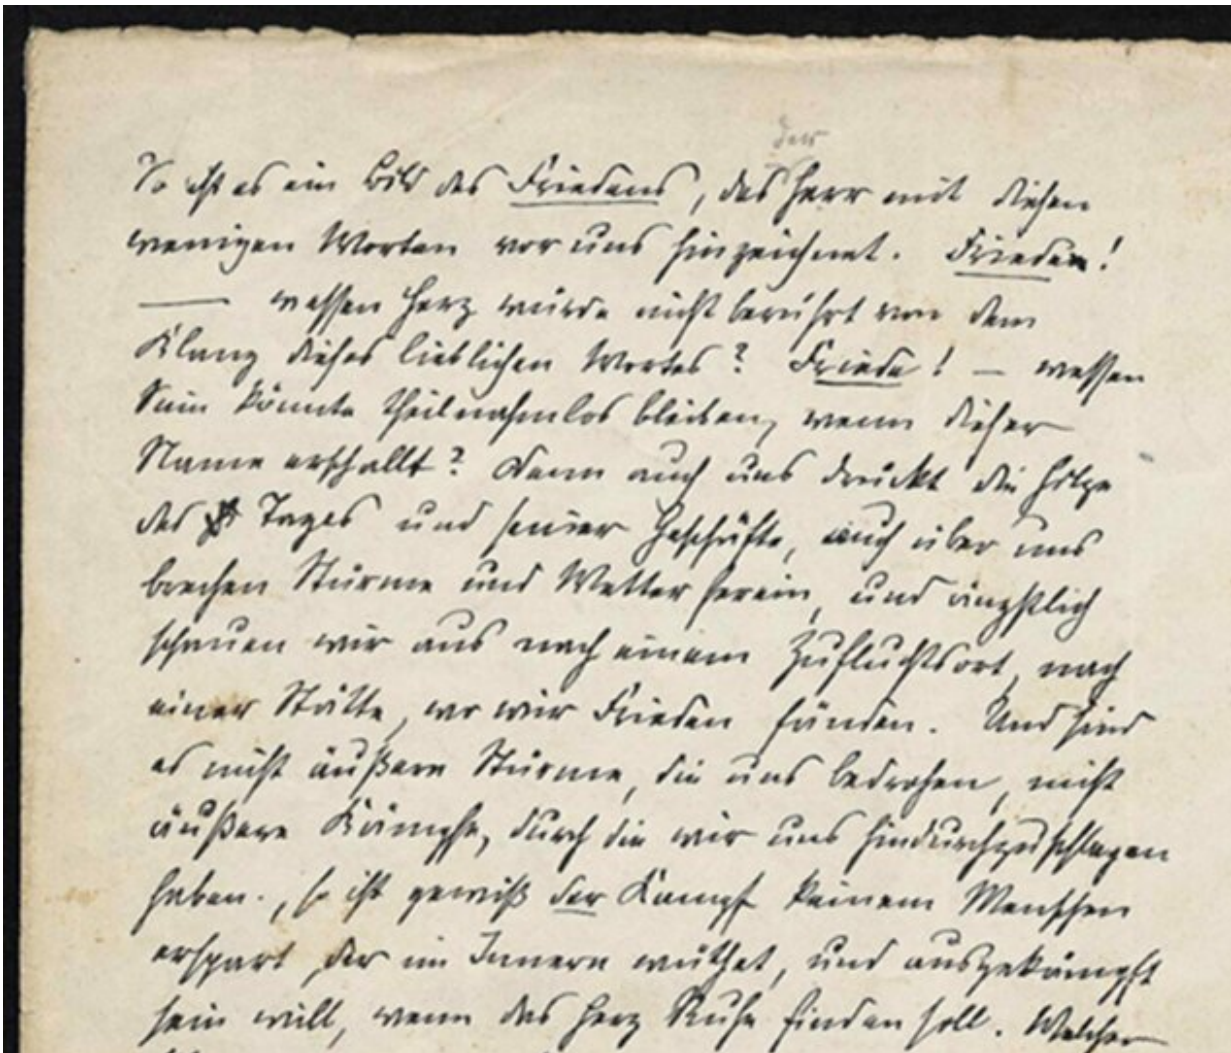 der
So ist es ein Bild des Friedens, das Herr mit diesen
wenigen Worten vor uns hinzeichnet. Frieden!
— wessen Herz würde nicht berührt von dem
Klang dieses lieblichen Wortes? Friede! — wessen
Sinn könnte theilnahmlos bleiben, wenn dieser
Name erschallt? Denn auch uns drückt die Hitze
des Tages und seiner Geschäfte, auch über uns
brechen Stürme und Wetter herein, und ängstlich
schauen wir aus nach einem Zufluchtsort, nach
einer Stätte, wo wir Frieden fänden. Und sind
es nicht äußere Stürme, die uns bedrohen, nicht
äußere Kämpfe, durch die wir uns hindurchzuschlagen
haben., so ist gewiß der Kampf keinem Menschen
erspart, der im Innern wüthet, und ausgekämpft
sein will, wenn das Herz Ruhe finden soll. Welcher